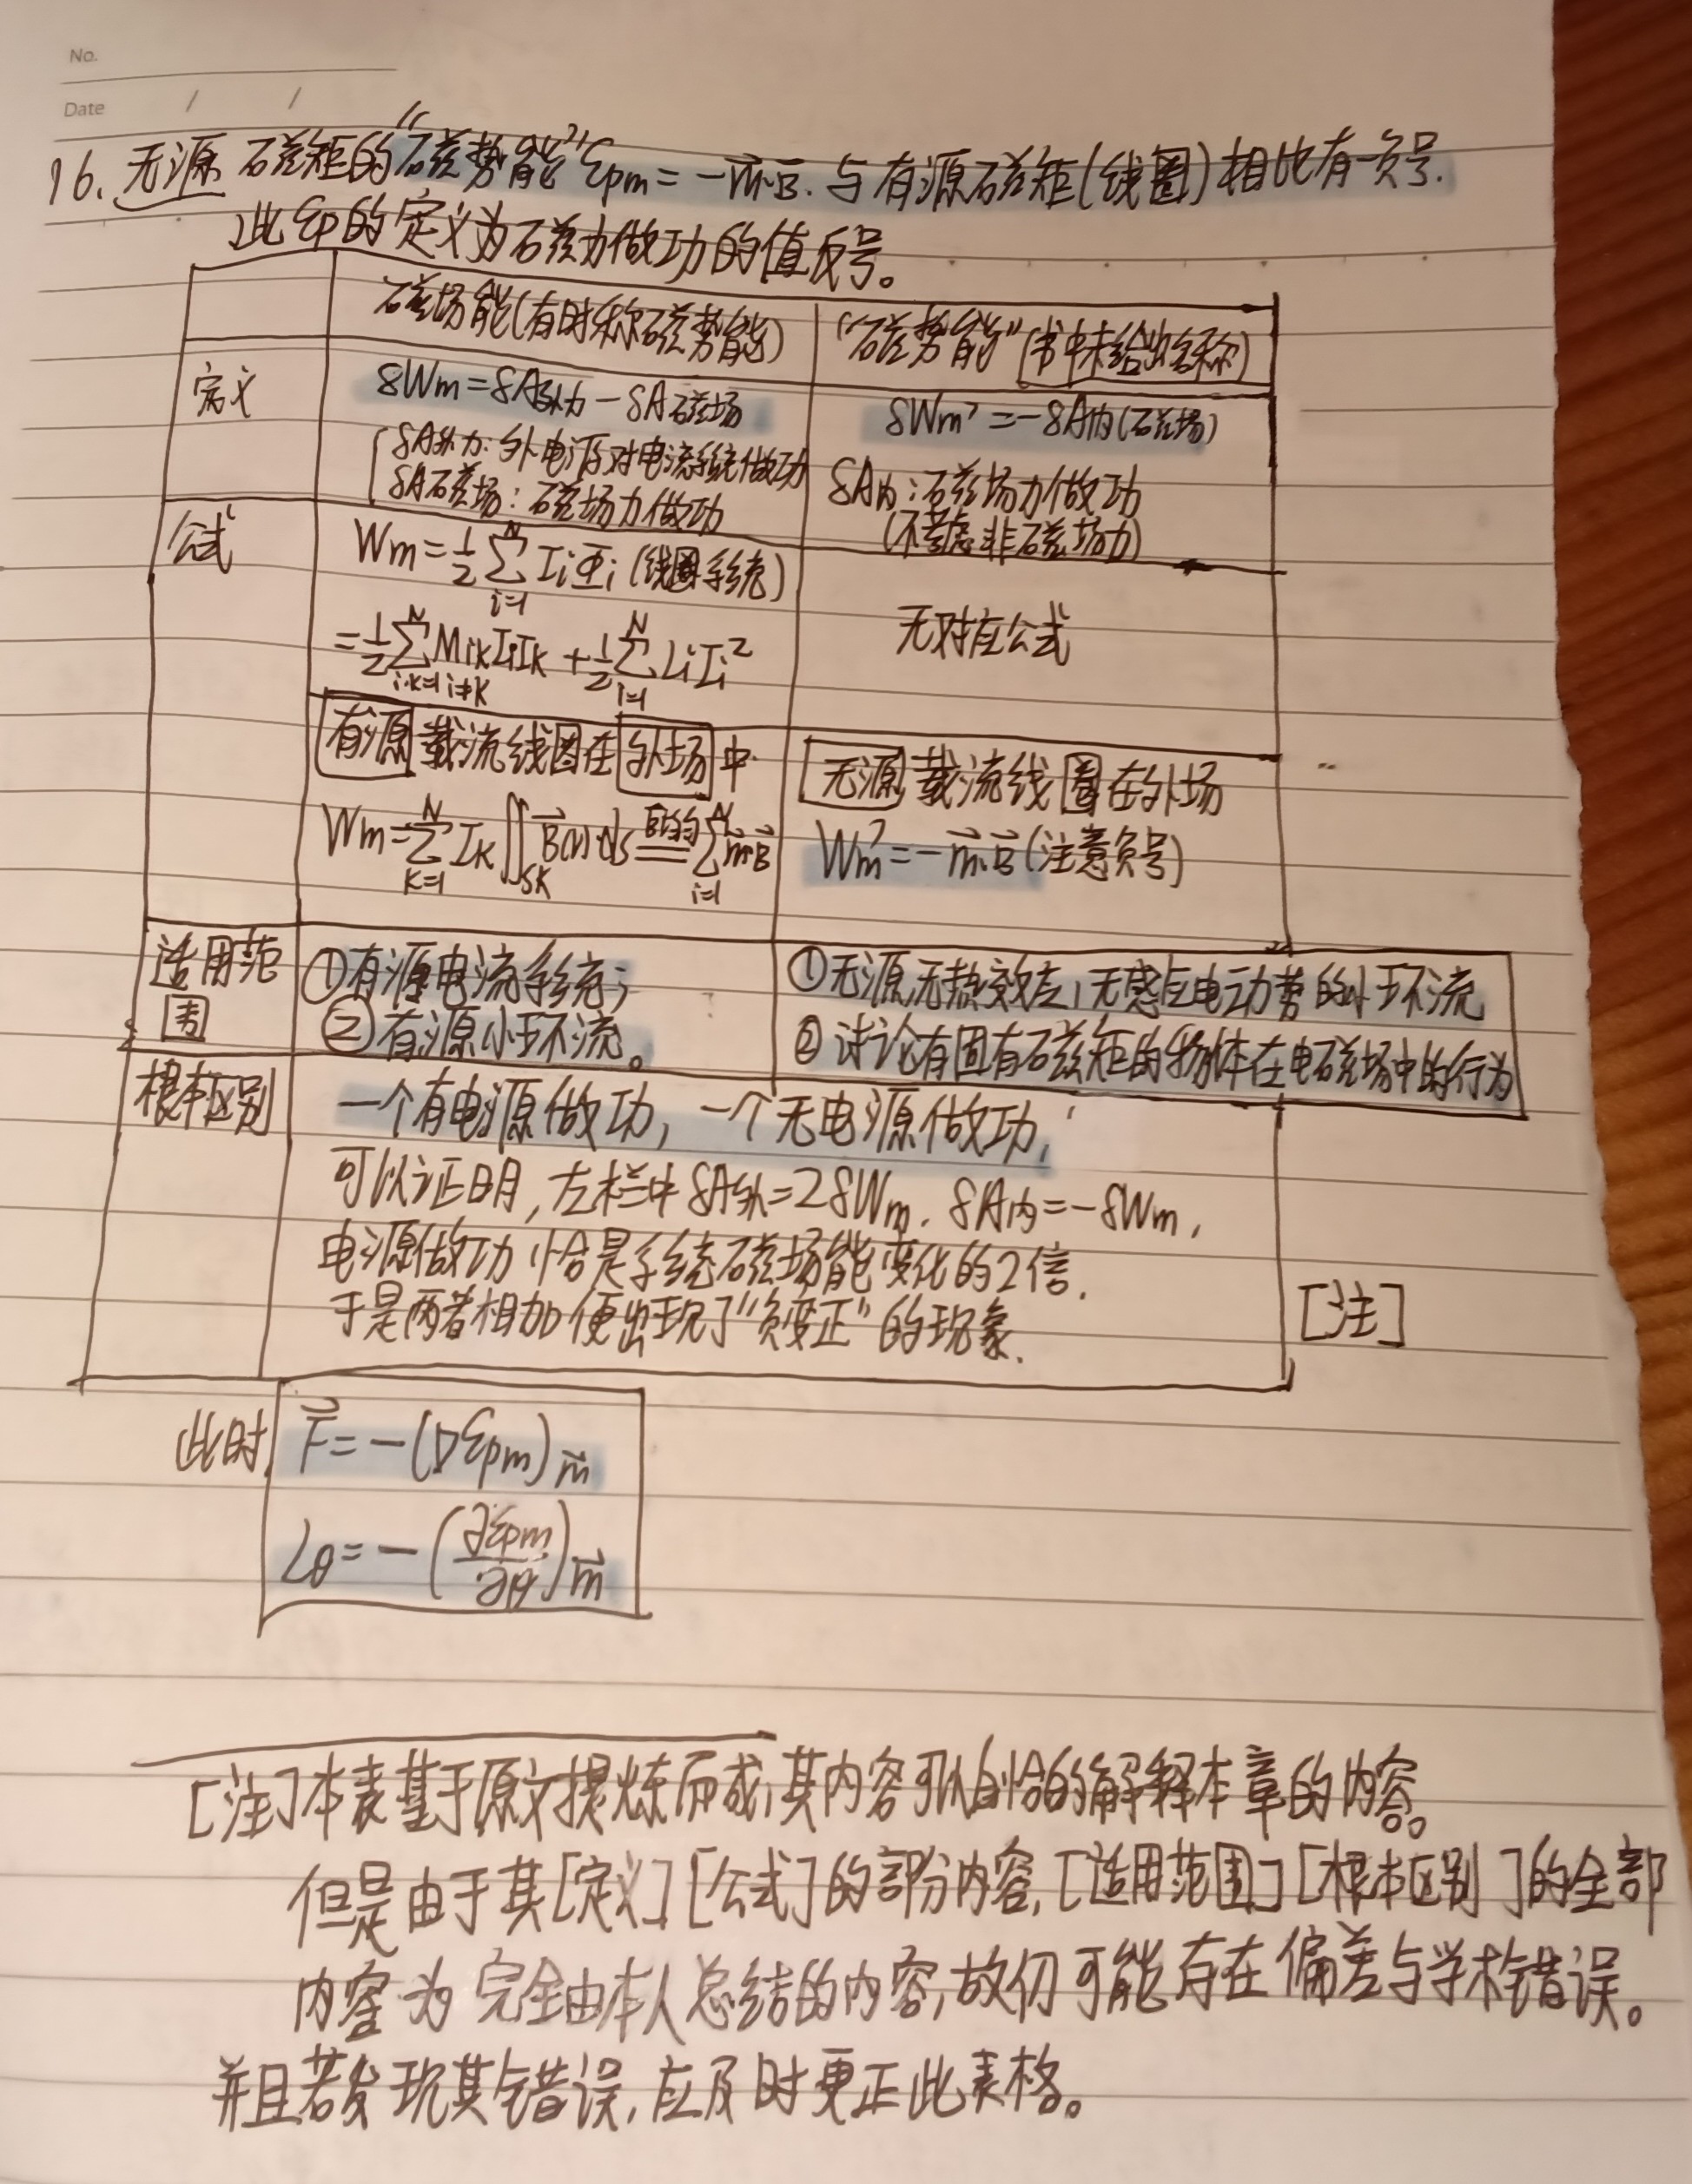 No.
Date / /
16. 无源磁矩的“磁势能”εpm = -m⃗·B⃗. 与有源磁矩(线圈)相比有一负号.
此εp的定义为磁力做功的值反号。
磁场能(有时称磁势能)
“磁势能”(书中未给出名称)
定义
δWm = δA外力 - δA磁场
δWm' = -δA内(磁场)
δA外力: 外电源对电流系统做功
δA磁场: 磁场力做功
δA内: 磁场力做功
(不考虑非磁场力)
公式
Wm = 1/2 ∑_{i=1}^{N} IiΦi (线圈系统)
= 1/2 ∑_{i.k=1 i≠k}^{N} MikIiIk + 1/2 ∑_{i=1}^{N} LiIi²
无对应公式
有源载流线圈在外场中
Wm = ∑_{K=1}^{N} IK ∬_{SK} B⃗(r)·ds ==B⃗均匀== ∑_{i=1}^{N} m⃗·B⃗
无源载流线圈在外场
Wm' = -m⃗·B⃗ (注意负号)
适用范围
①有源电流系统;
②有源小环流。
①无源,无热效应,无感应电动势的小环流
②讨论有固有磁矩的物体在电磁场中的行为
根本区别
一个有电源做功, 一个无电源做功,
可以证明, 左栏中δA外=2δWm. δA内=-δWm,
电源做功恰是系统磁场能变化的2倍.
于是两者相加便出现了“负变正”的现象.
[注]
此时
F⃗ = -(∇εpm)m⃗
Lθ = -(∂εpm/∂θ)m⃗
[注]本表基于原文提炼而成,其内容可以自恰的解释本章的内容。
但是由于其[定义][公式]的部分内容,[适用范围][根本区别]的全部
内容为完全由本人总结的内容,故仍可能存在偏差与学术错误。
并且若发现其错误,应及时更正此表格。